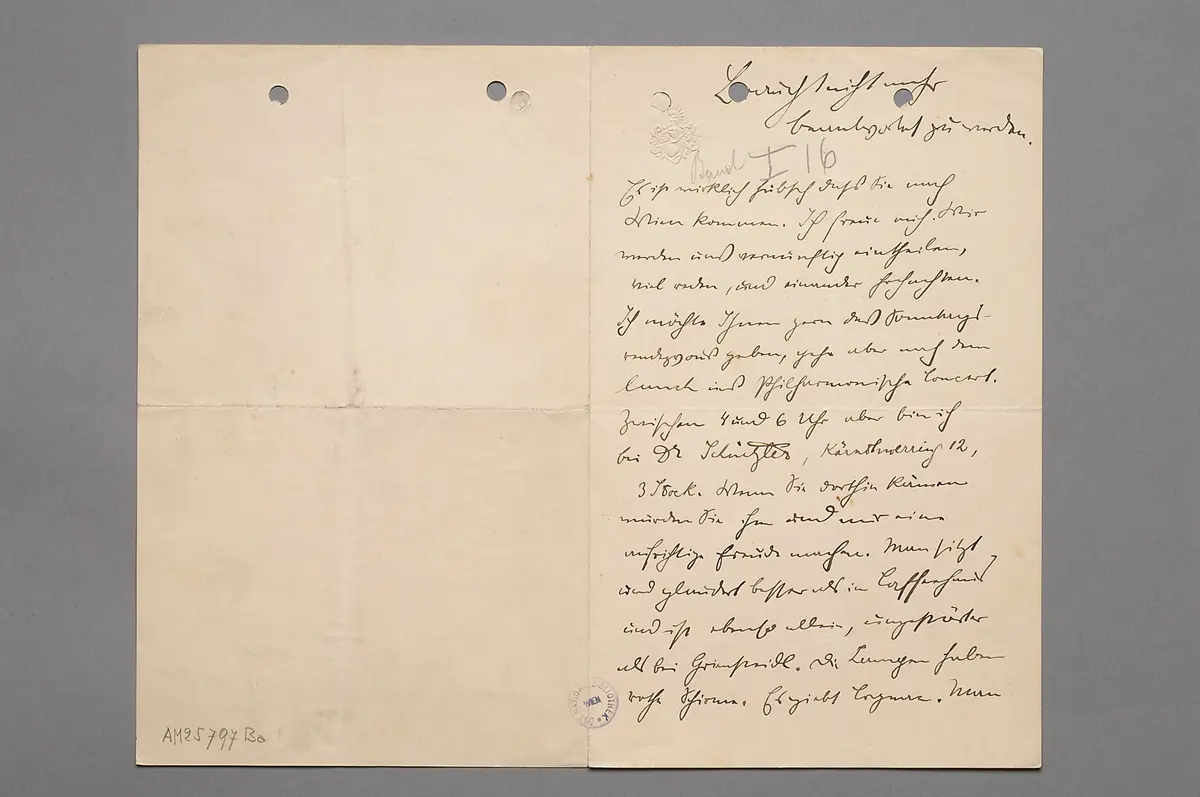 Braucht nicht mehr
beantwortet zu werden.
Band I 16
Es ist wirklich hübsch dass Sie nach
Wien kommen. Ich freue mich. Wir
werden uns vernünftig eintheilen,
viel reden, und einander hochachten.
Ich möchte Ihnen gern das Sonntags-
rendezvous geben, gehe aber nach dem
lunch ins Philharmonische Concert.
Zwischen 4 und 6 Uhr aber bin ich
bei Dr, Kärnthnerring 12,
3 Stock. Wenn Sie dorthin kämen
würden Sie ihm und mir eine
aufrichtige Freude machen. Man sitzt
und plaudert besser als im Caffeehaus,
und ist ebenso allein, ungestörter
als bei Griensteidl. Die Lampen haben
rothe Schirme. Es giebt Cognac. Man
AM 25797 Ba
NATIONALBIBLIOTHEK
WIEN